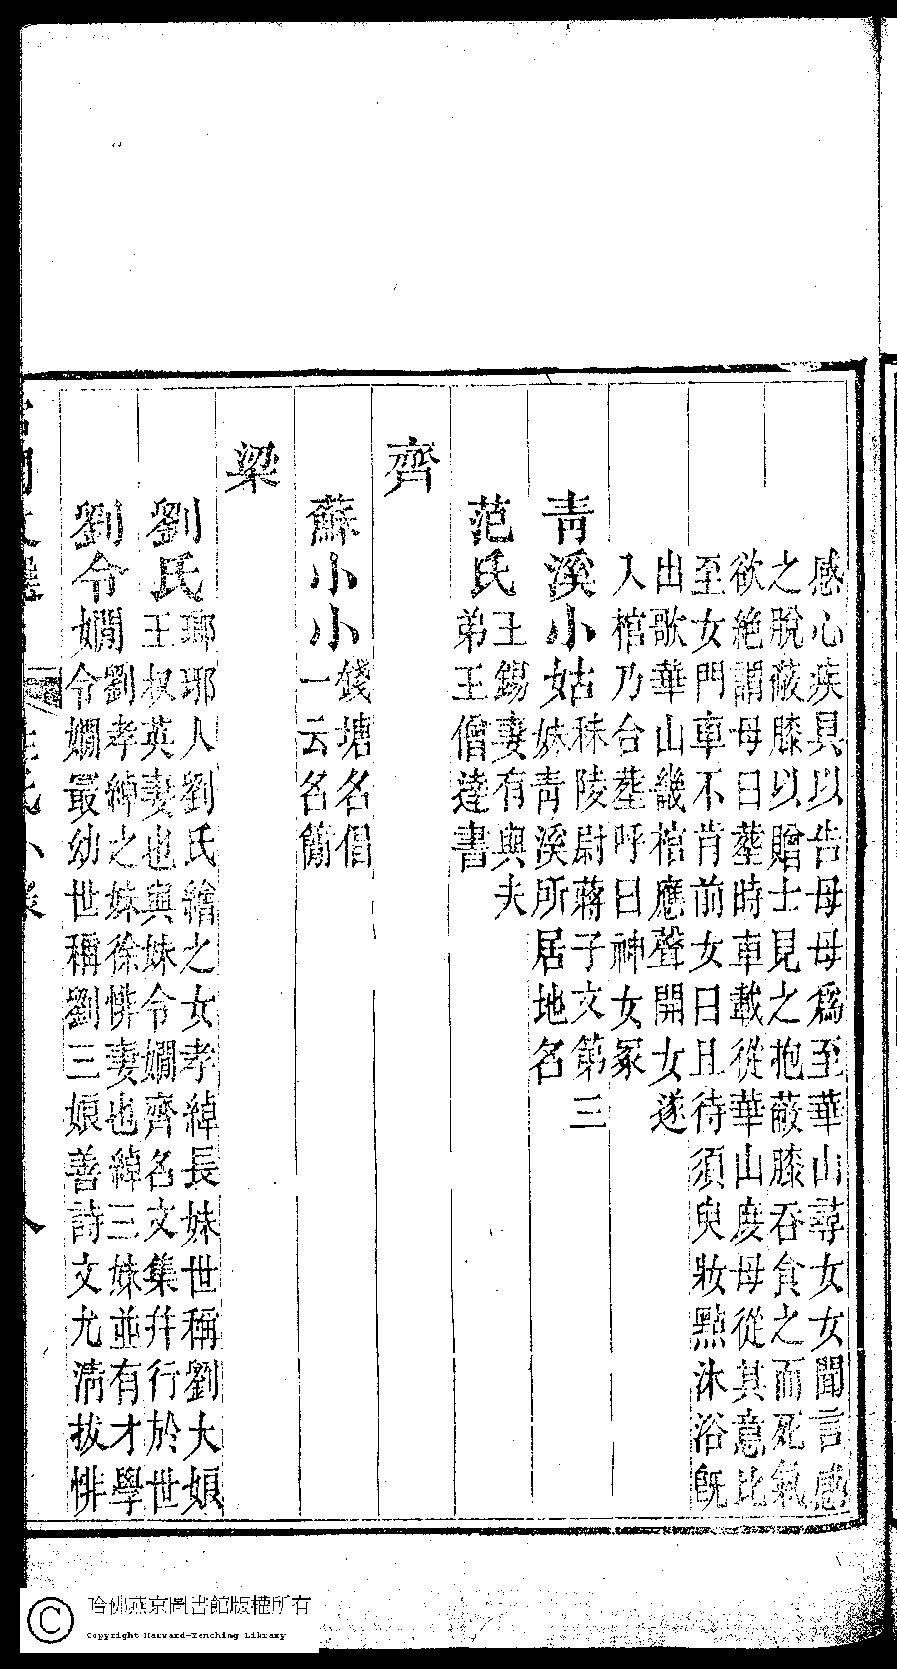 感心疾具以告母母爲至華山尋女女聞言感
之脫蔽膝以贈士見之抱蔽膝吞食之而死氣
欲絶謂母曰葬時車載從華山度母從其意比
至女門車不肯前女曰且待須臾妝點沐浴旣
出歌華山畿棺應聲開女遂
入棺乃合葬呼曰神女冢
青溪小姑秣陵尉蔣子文第三
妹青溪所居地名
范氏王錫妻有與夫
弟王僧達書
齊
蘇小小錢塘名倡
一云名簡
梁
劉氏瑯耶人劉氏繪之女孝綽長妹世稱劉大娘
王叔英妻也與妹令嫺齊名文集幷行於世
劉令嫺劉孝綽之妹徐悱妻也綽三妹並有才學
令嫺最幼世稱劉三娘善詩文尤淸拔悱
姓氏小錄
八
哈佛燕京圖書館版權所有
Copyright Harvard-Yenching Library